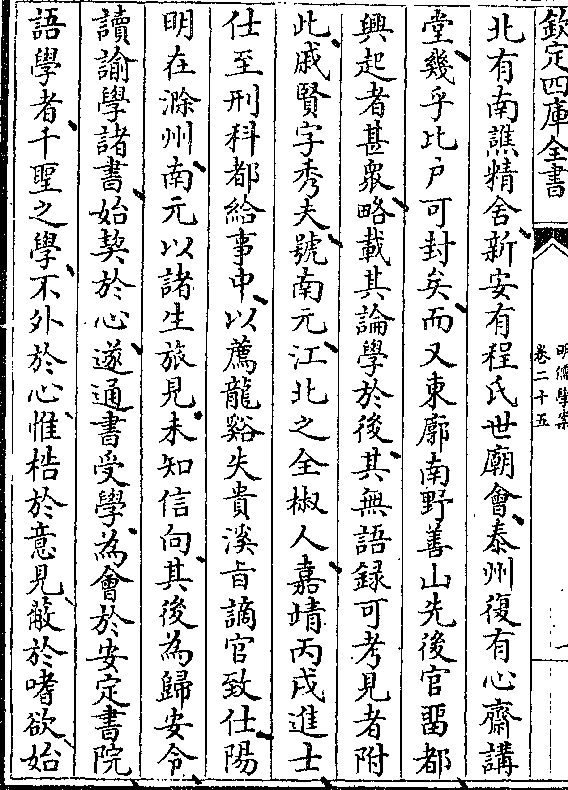 欽定四庫全書
明儒學案
卷二十五
北有南譙精舍新安有程氏世廟會泰州復有心齋講
堂幾乎比户可封矣而又東廓南野善山先後官畱都
興起者甚衆略載其論學於後其無語録可考見者附
此戚賢字秀夫號南元江北之全椒人嘉靖丙戌進士
仕至刑科都給事中以薦龍谿失貴溪㫖謫官致仕陽
明在滁州南元以諸生旅見未知信向其後為歸安令
讀諭學諸書始契於心遂通書受學為會於安定書院
語學者千聖之學不外於心惟梏於意見蔽於嗜欲始